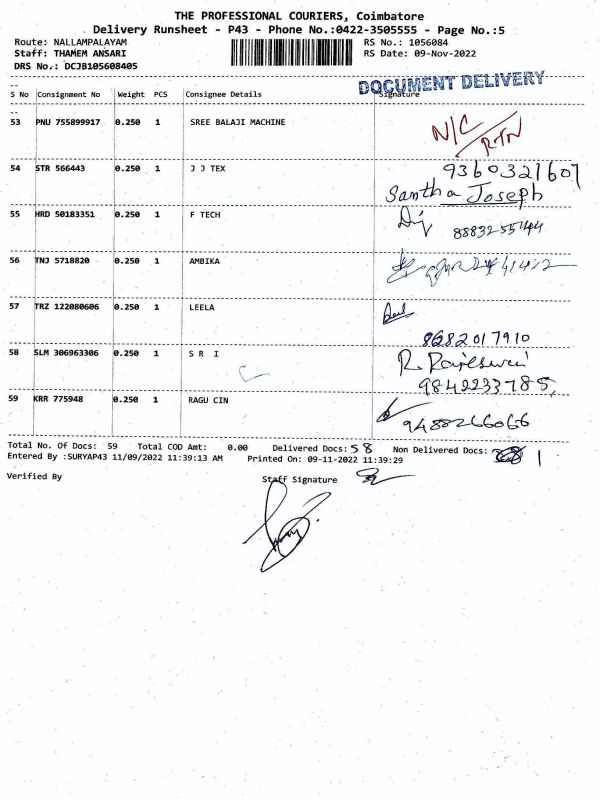 THE PROFESSIONAL COURIERS, Coimbatore
Delivery Runsheet - P43 - Phone No.:0422-3505555 - Page No.:5
Route: NALLAMPALAYAM RS No.: 1056084
Staff: THAMEM ANSARI RS Date: 09-Nov-2022
DRS No.: DCJB105608405
DOCUMENT DELIVERY
S No Consignment No Weight PCS Consignee Details Signature
53 PNU 755899917 0.250 1 SREE BALAJI MACHINE N/C RTN
54 STR 566443 0.250 1 J J TEX 9360321601
Santha Joseph
55 HRD 50183351 0.250 1 F TECH 88832-55144
56 TNJ 5718820 0.250 1 AMBIKA
57 TRZ 122080606 0.250 1 LEELA
8682017910
58 SLM 306963306 0.250 1 S R I R. Rajeswari
9842233785
59 KRR 775948 0.250 1 RAGU CIN 9488266066
Total No. Of Docs: 59 Total COD Amt: 0.00 Delivered Docs: 58 Non Delivered Docs: 1
Entered By :SURYAP43 11/09/2022 11:39:13 AM Printed On: 09-11-2022 11:39:29
Verified By Staff Signature